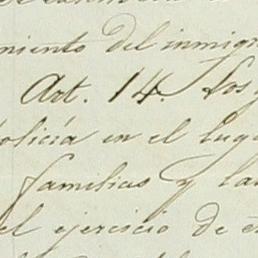 miento del inmigr
Art. 14. Los
olicía en el luga
familias y la
el ejercicio de e